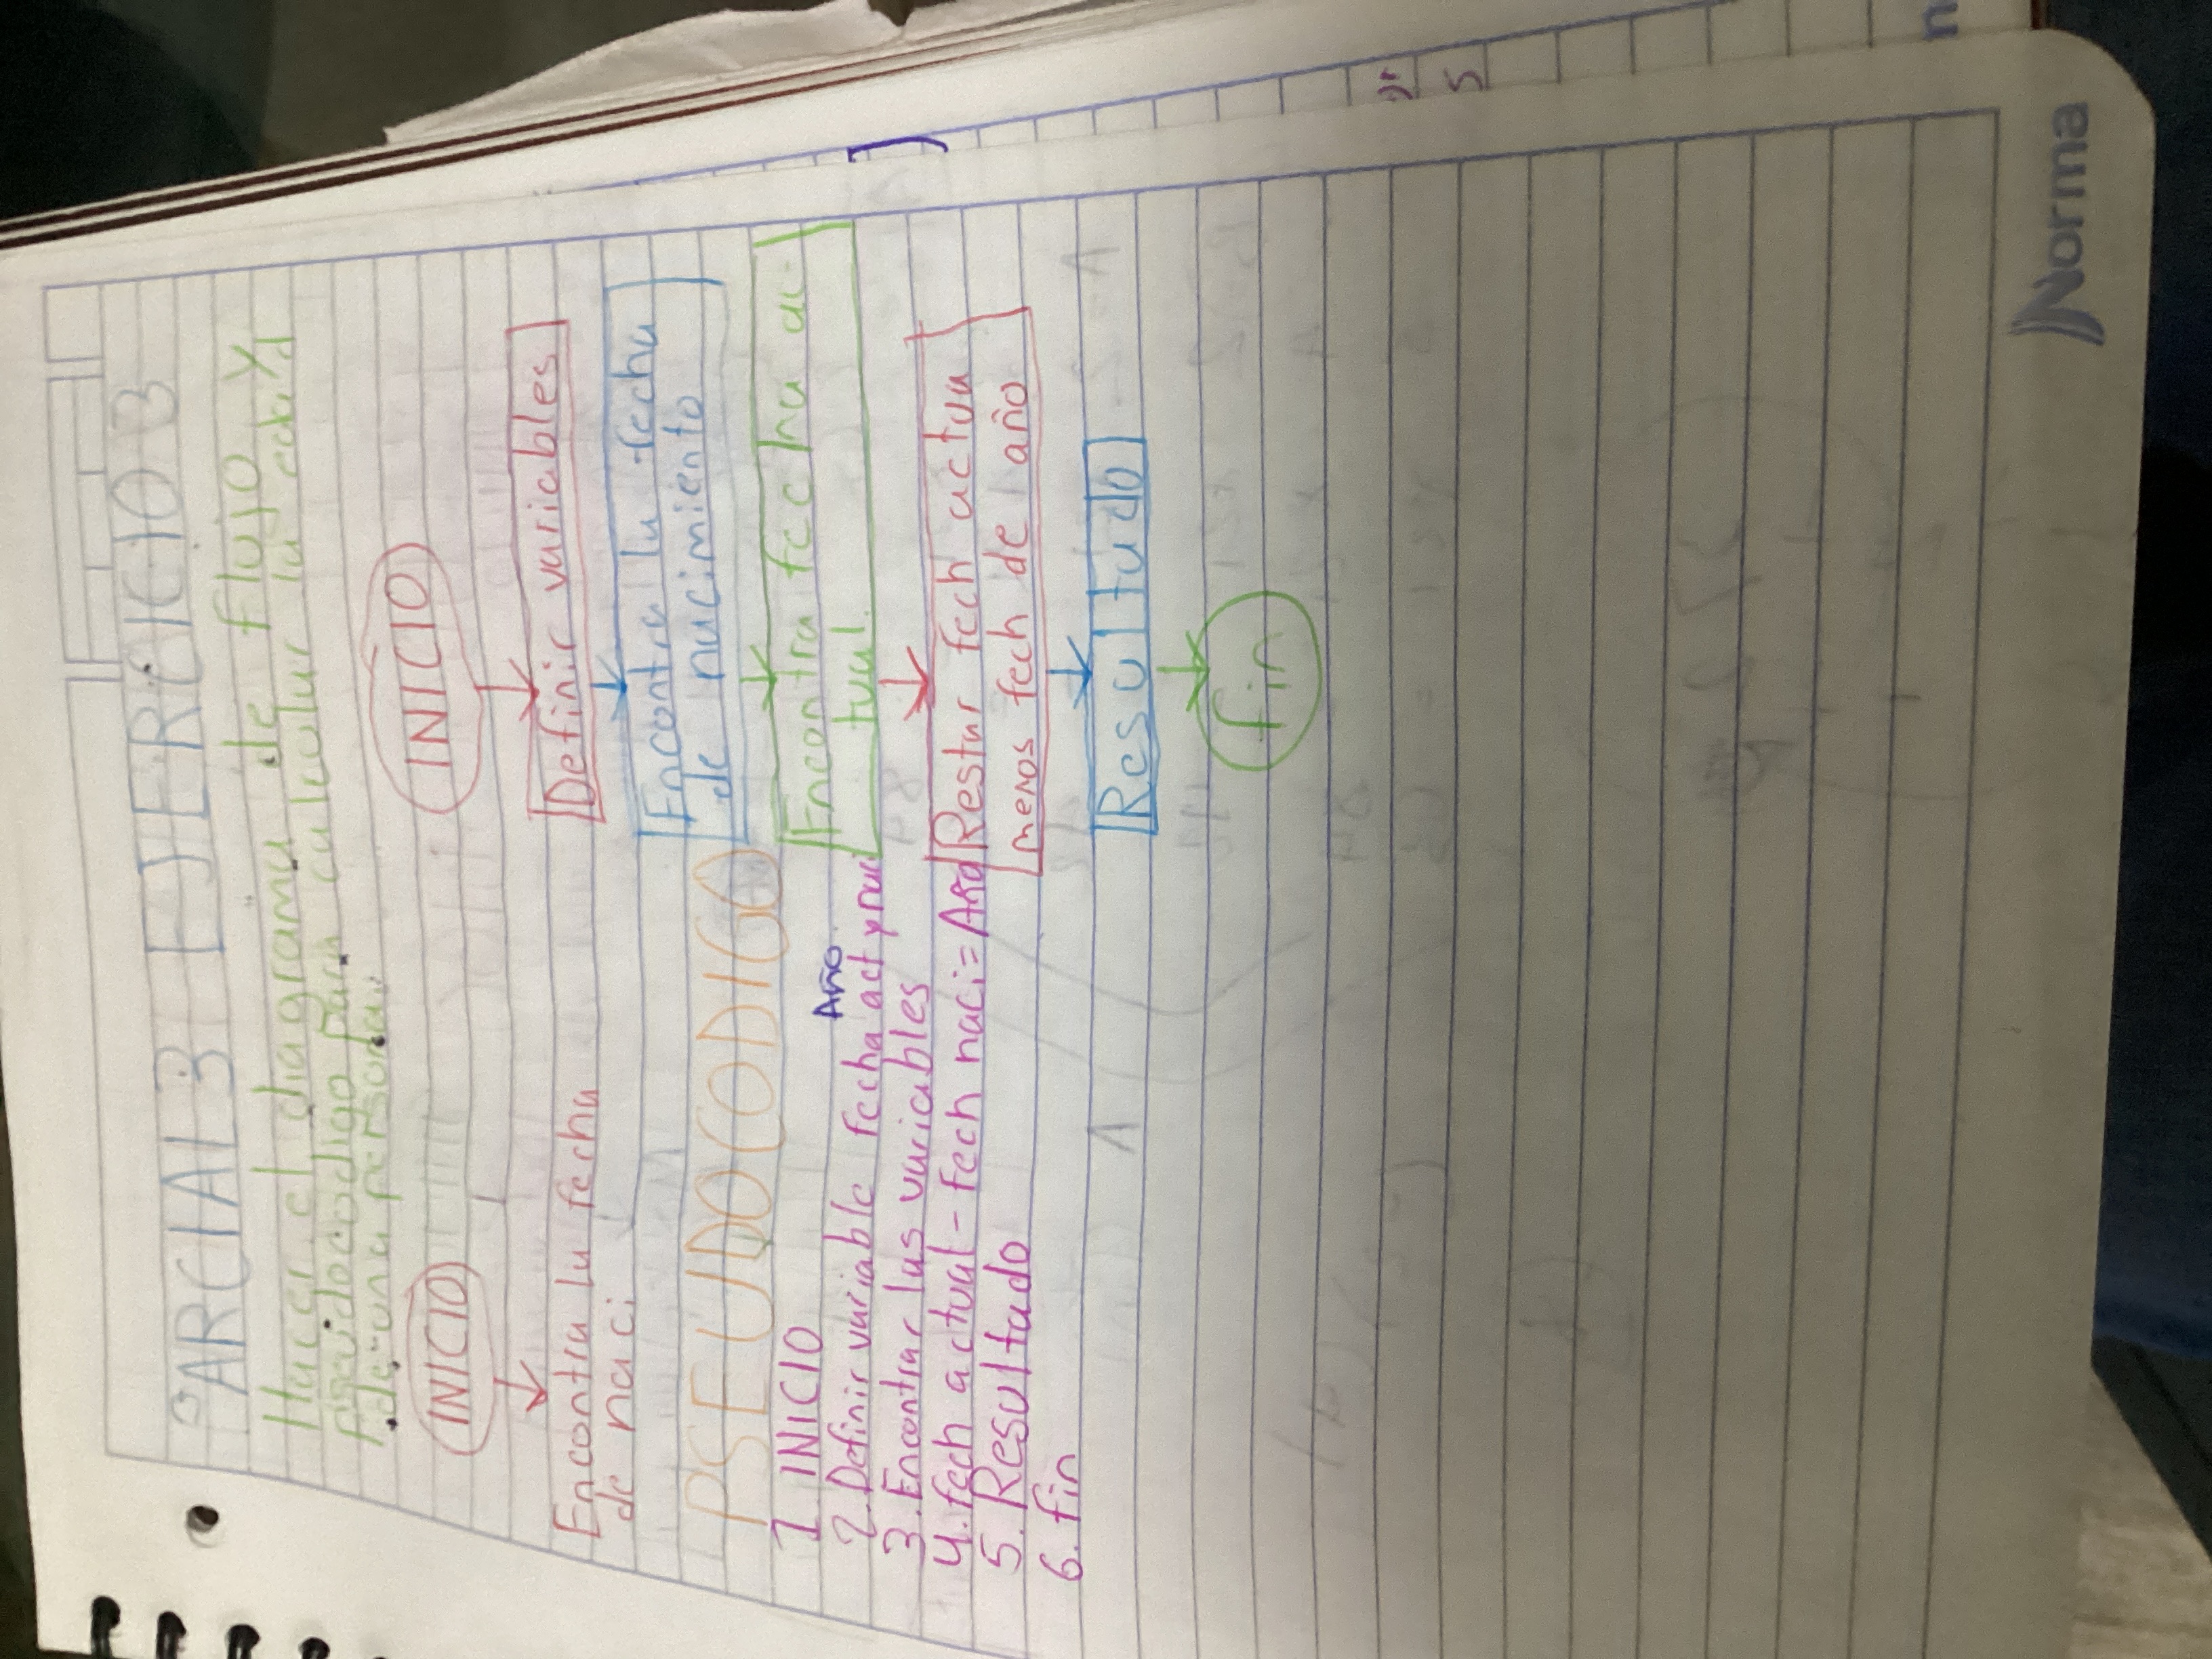 PARCIAL 3 EJERCICIO 3
Hacer el diagrama de flujo y
pseudocodigo para calcular la edad
de una persona.
INICIO
Encontra la fecha
de naci
INICIO
Definir variables
Encontra la fecha
de nacimiento
Encontra fecha ac-
tual.
Restar fech actua
menos fech de año
Resultado
fin
PSEUDOCODIGO
1. INICIO
Año
2. Definir variable fecha act y naci
3. Encontrar las variables
4. fech actual - fech naci = Año
5. Resultado
6. fin
Norma